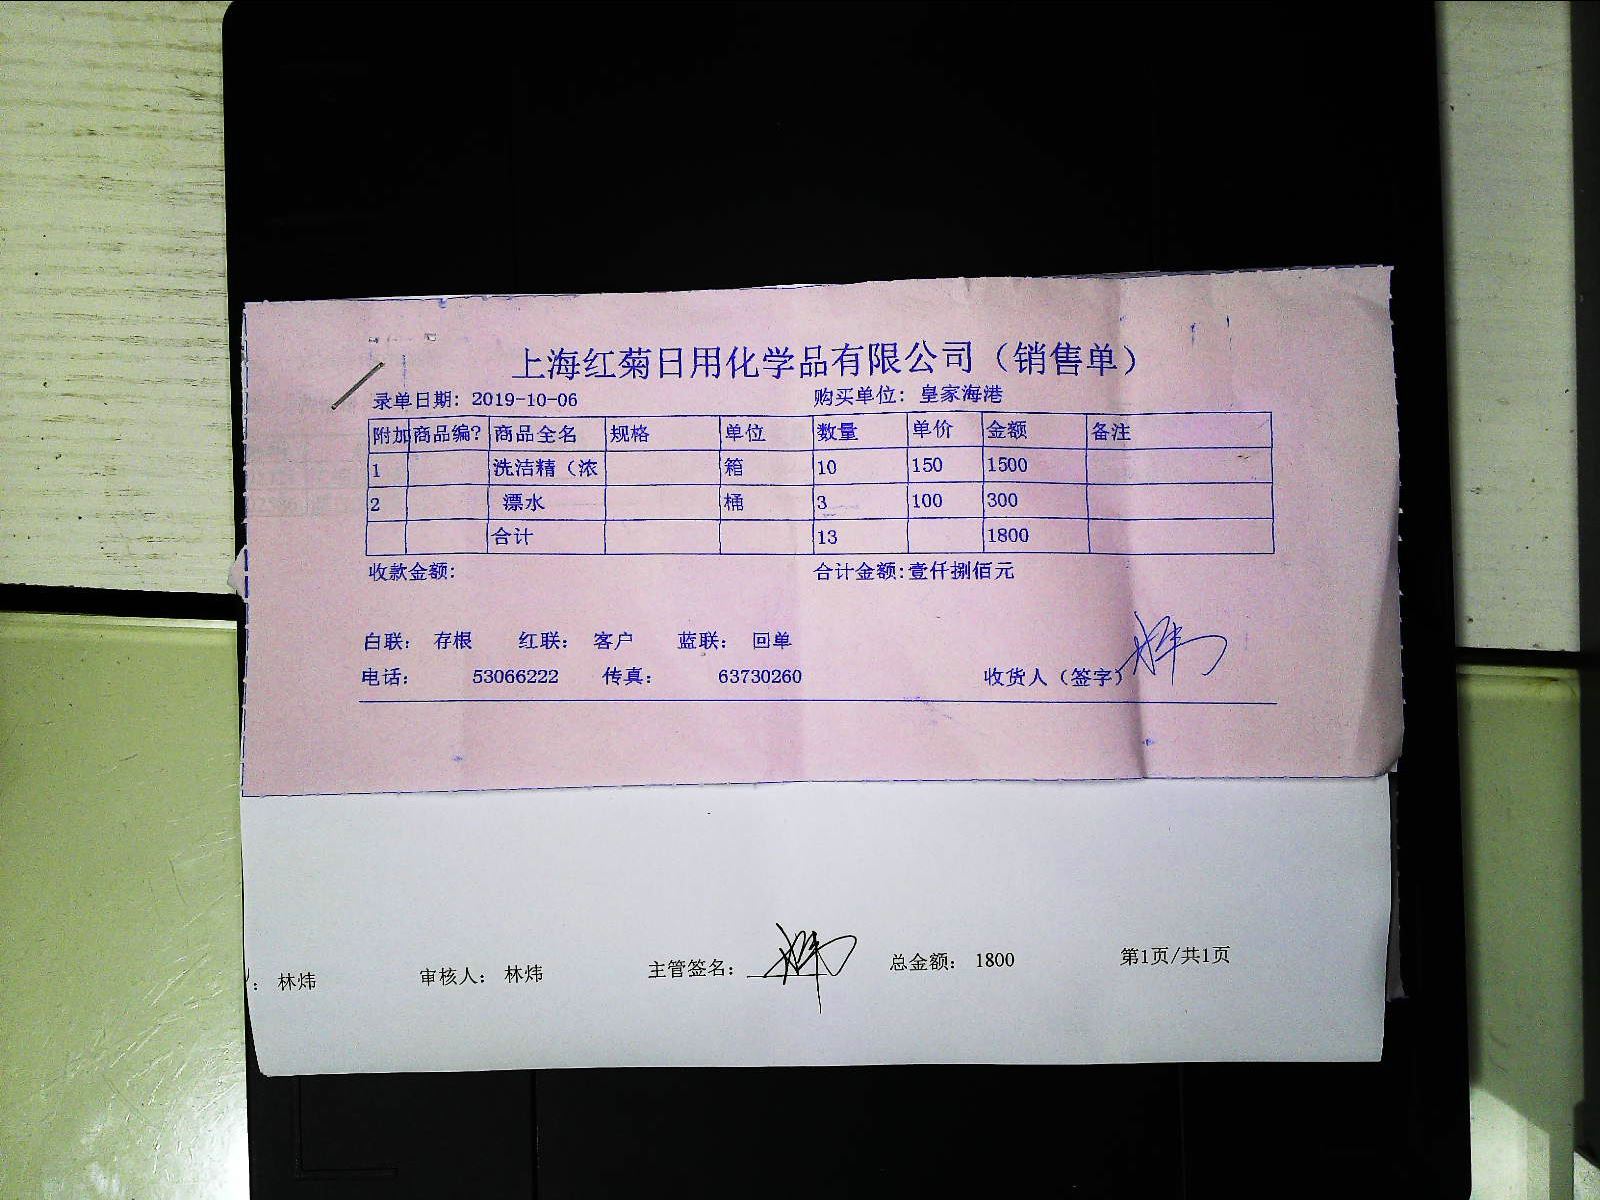 上海红菊日用化学品有限公司（销售单）
录单日期: 2019-10-06 购买单位: 皇家海港
附加 商品编? 商品全名 规格 单位 数量 单价 金额 备注
1 洗洁精（浓 箱 10 150 1500
2 漂水 桶 3 100 300
合计 13 1800
收款金额: 合计金额:壹仟捌佰元
白联: 存根 红联: 客户 蓝联: 回单
电话: 53066222 传真: 63730260 收货人（签字）
: 林炜 审核人: 林炜 主管签名: 总金额: 1800 第1页/共1页